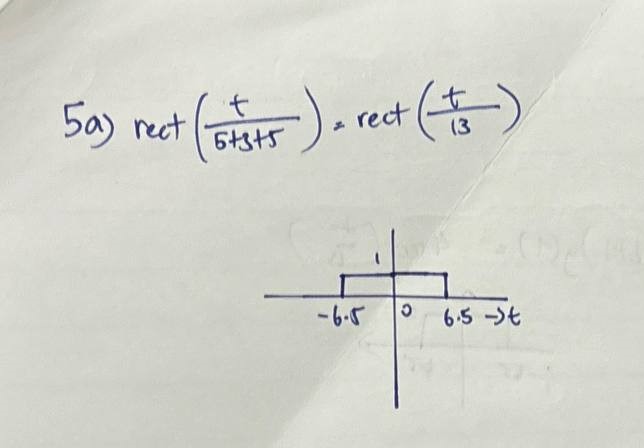 5a) rect(t/(5+3+5)) = rect(t/13)
1
-6.5 0 6.5 →t